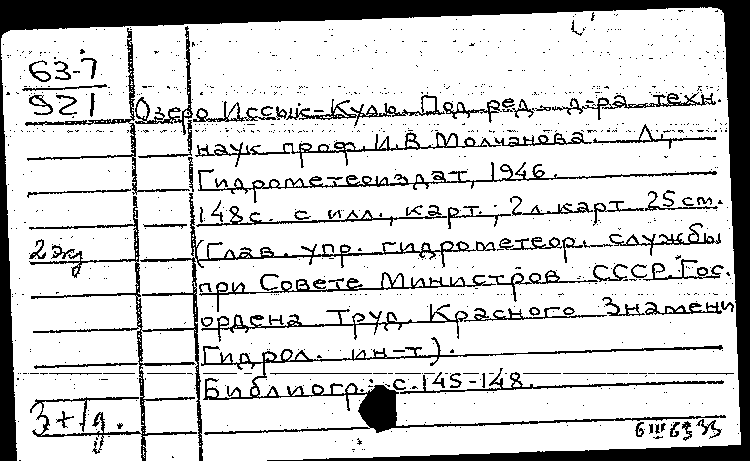 63-7
921
Озеро Иссык-Куль. Под ред. д-ра техн.
наук проф. И.В. Молчанова. Л.,
Гидрометеоиздат, 1946.
148с. с илл., карт.; 2 л. карт 25 см.
2 эк
(Глав. упр. гидрометеор. службы
при Совете Министров СССР. Гос.
ордена Труд. Красного Знамени
Гидрол. ин-т).
Библиогр.: с. 145-148.
3+1д.
6 III 63